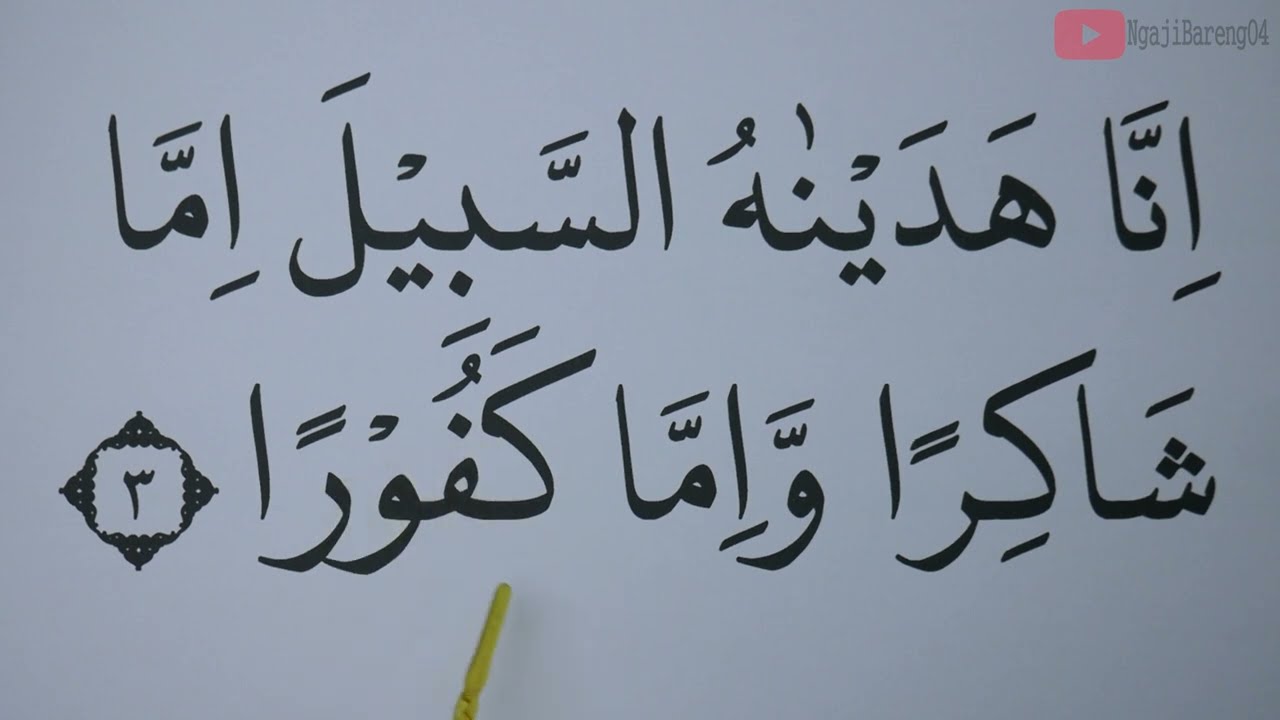 NgajiBareng04
اِنَّا هَدَيْنٰهُ السَّبِيْلَ اِمَّا
شَاكِرًا وَّاِمَّا كَفُوْرًا ٣